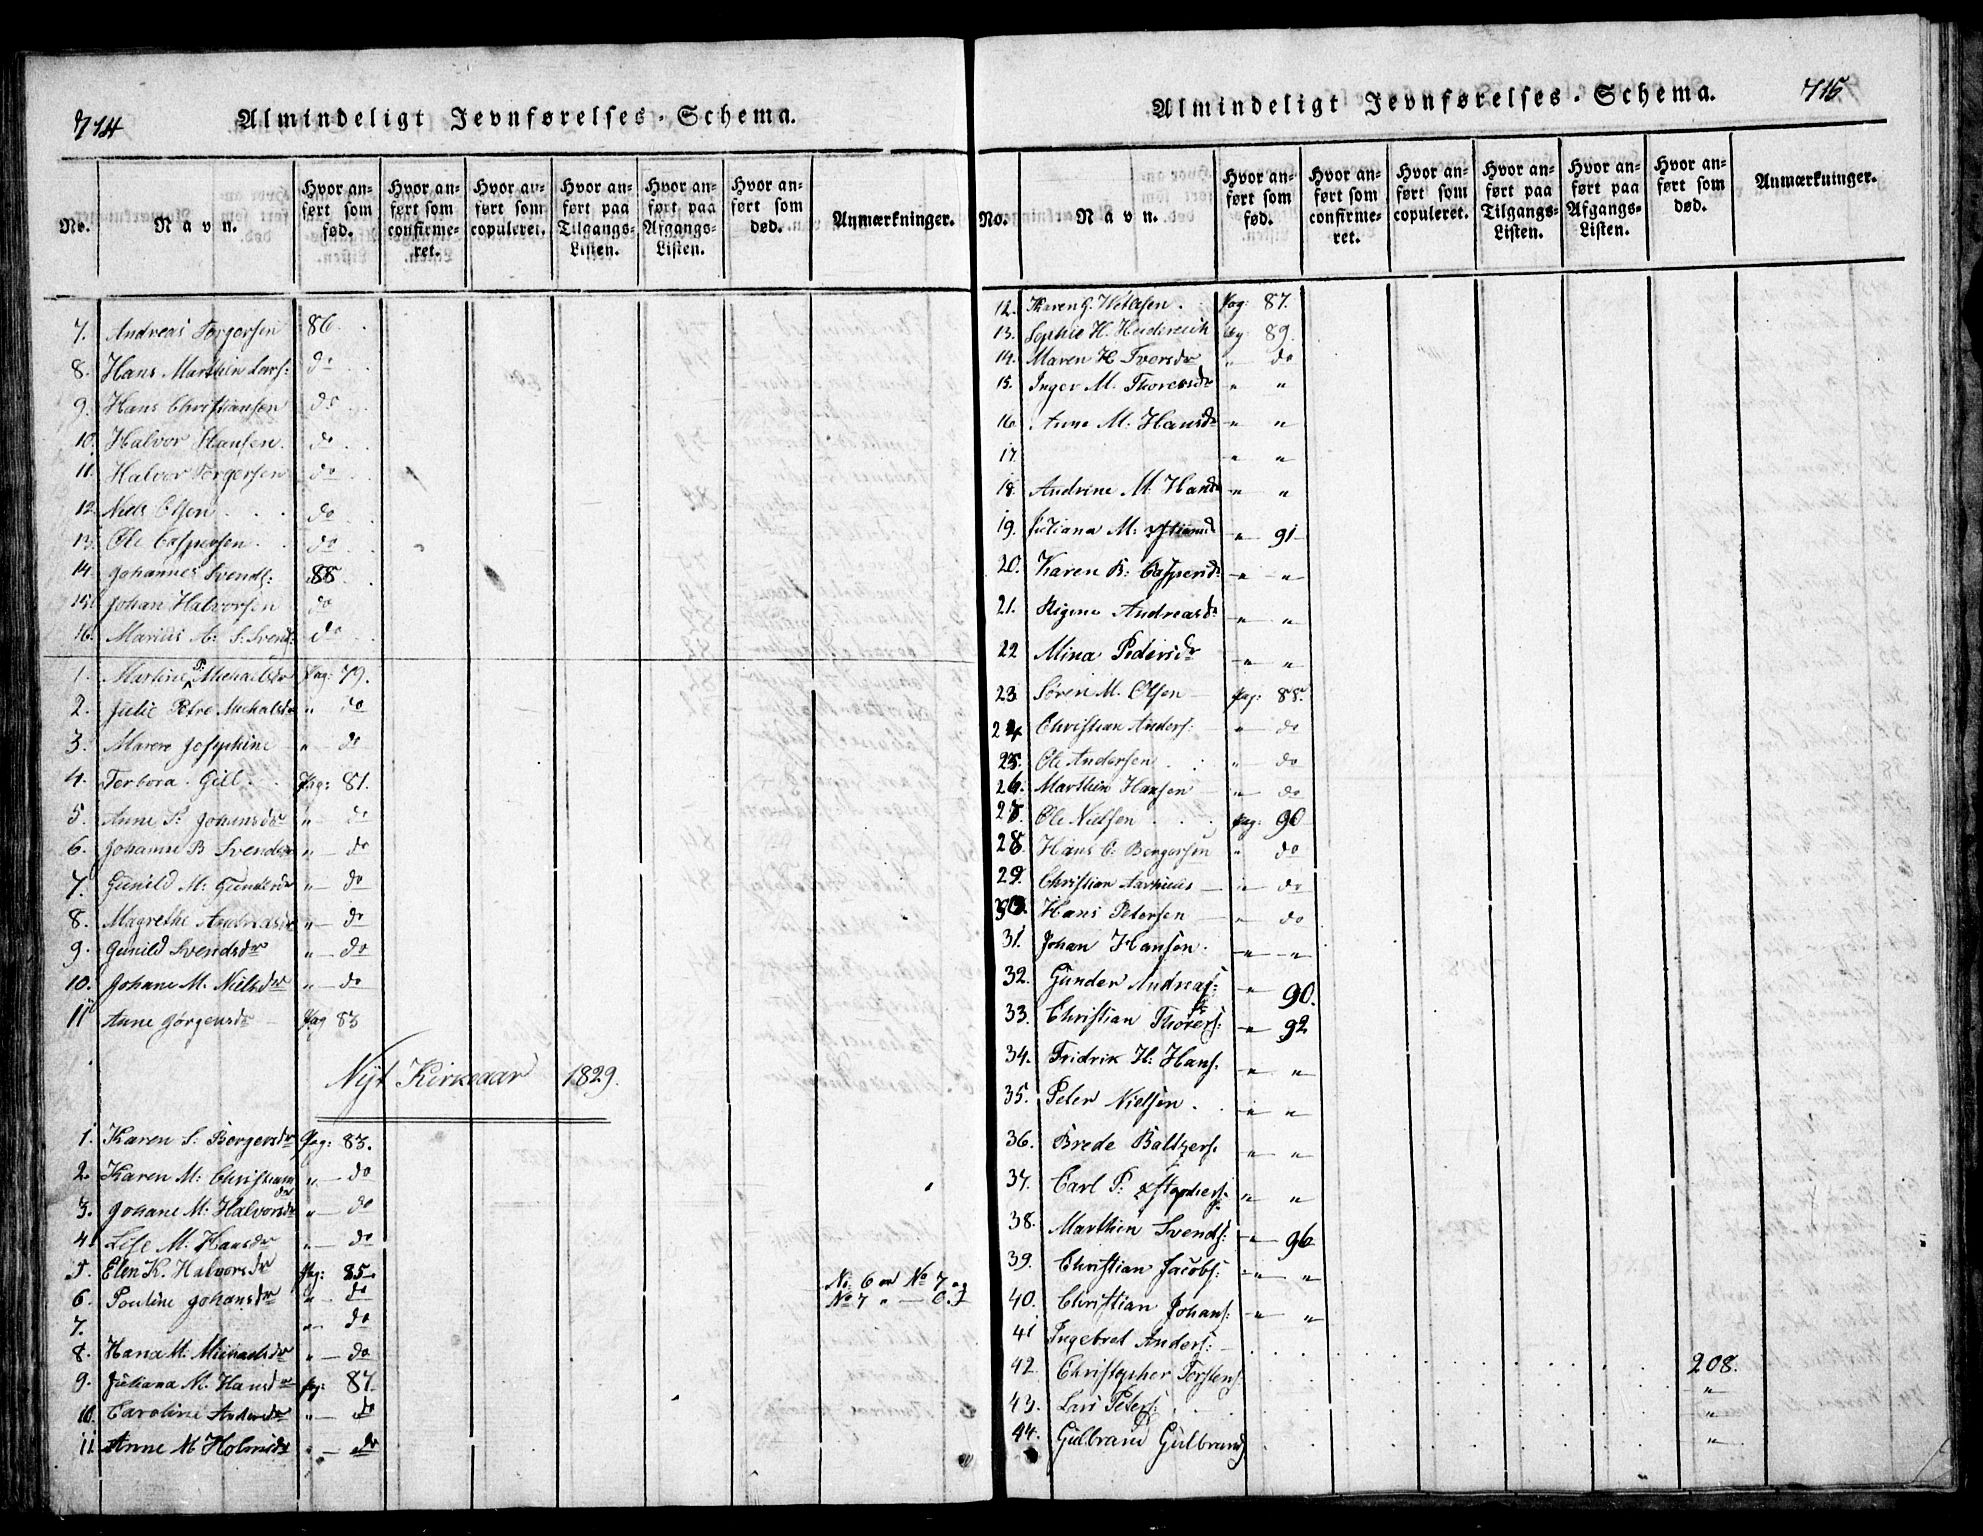 714
Almindeligt Jevnførelses-Schema.
No. Navn. Hvor anført som fød. Hvor anført som confirmeret. Hvor anført som copuleret. Hvor anført paa Tilgangs-Listen. Hvor anført paa Afgangs-Listen. Hvor anført som død. Anmærkninger.
7. Andreas Torgersen 86.
8. Hans Marthin Lars: do
9. Hans Christiansen do
10. Halvor Hansen. do
11. Halvor Torgersen do
12. Niels Olsen do
13. Ole Caspersen do
14. Johannes Svends: 88.
15. Johan Halvorsen do
16. Marius A: S: Svend: do
1. Martine P: Michaelsdr Pag: 79.
2. Julie Petre Michalsdr " do
3. Maren Josephine " do
4. Terbora Gill Pag: 81.
5. Anne P: Johansdr " do
6. Johanne B Svendsdr " do
7. Gunild M: Gundersdr " do
8. Magrethe Andreasdr " do
9. Gunild Svendsdr " do
10. Johane M. Nielsdr " do
11 Anne Jørgensdr Pag 83
Nyt Kirkeaar 1829.
1. Karen S: Borgersdr Pag: 83.
2. Karen M: Christiansdr " do
3. Johane M: Halvorsdr " do
4. Lise M. Hansdr " do
5. Elen K. Halvorsdr Pag: 85.
6. Pouline Johansdr " do No: 6 er No 7 og
7. " do No 7 "
8. Hana M: Michaelsdr " do
9. Juliana M. Hansdr Pag: 87.
10. Caroline Andersdr " do
11. Anne M Holmsdr " do
715
Almindeligt Jevnførelses-Schema.
No. Navn. Hvor anført som fød. Hvor anført som confirmeret. Hvor anført som copuleret. Hvor anført paa Tilgangs-Listen. Hvor anført paa Afgangs-Listen. Hvor anført som død. Anmærkninger.
12. Karen G. Wetlesen. Pag: 87.
13. Sophie H. Heidereich Pag 89.
14. Maren H Iversdr " do
15. Inger M. Thoresdr " "
16. Anne M. Hansdr " "
17. " "
18. Andrine M. Hansdr " "
19. Juliana M: " 91
20. Karen B: Caspersdr " "
21. Regine Andreasdr " "
22 Mina Pedersdr " "
23. Søren M. Olsen Pag: 88.
24 Christian Anders: " do
25. Ole Andersen " do
26. Marthin Hansen " do
27. Ole Nielsen Pag: 90
28. Hans C: Borgersen " do
29. Christian Aarhuus " do
30. Hans Petersen " do
31. Johan Hansen. " "
32. Gunder Andreas: " 90.
33. Christian Thores: " 92
34. Fridrik H: Hans. " "
35. Peter Nielsen. " "
36. Brede Baltzers. " "
37. Carl P: " "
38. Marthin Svends: " 96
39. Christian Jacobs: " "
40. Christian Johans: " "
41 Ingebret Anders:
42. Christopher Torstens 208.
43. Lars Peters: "
44. Gulbrand Gulbrands "